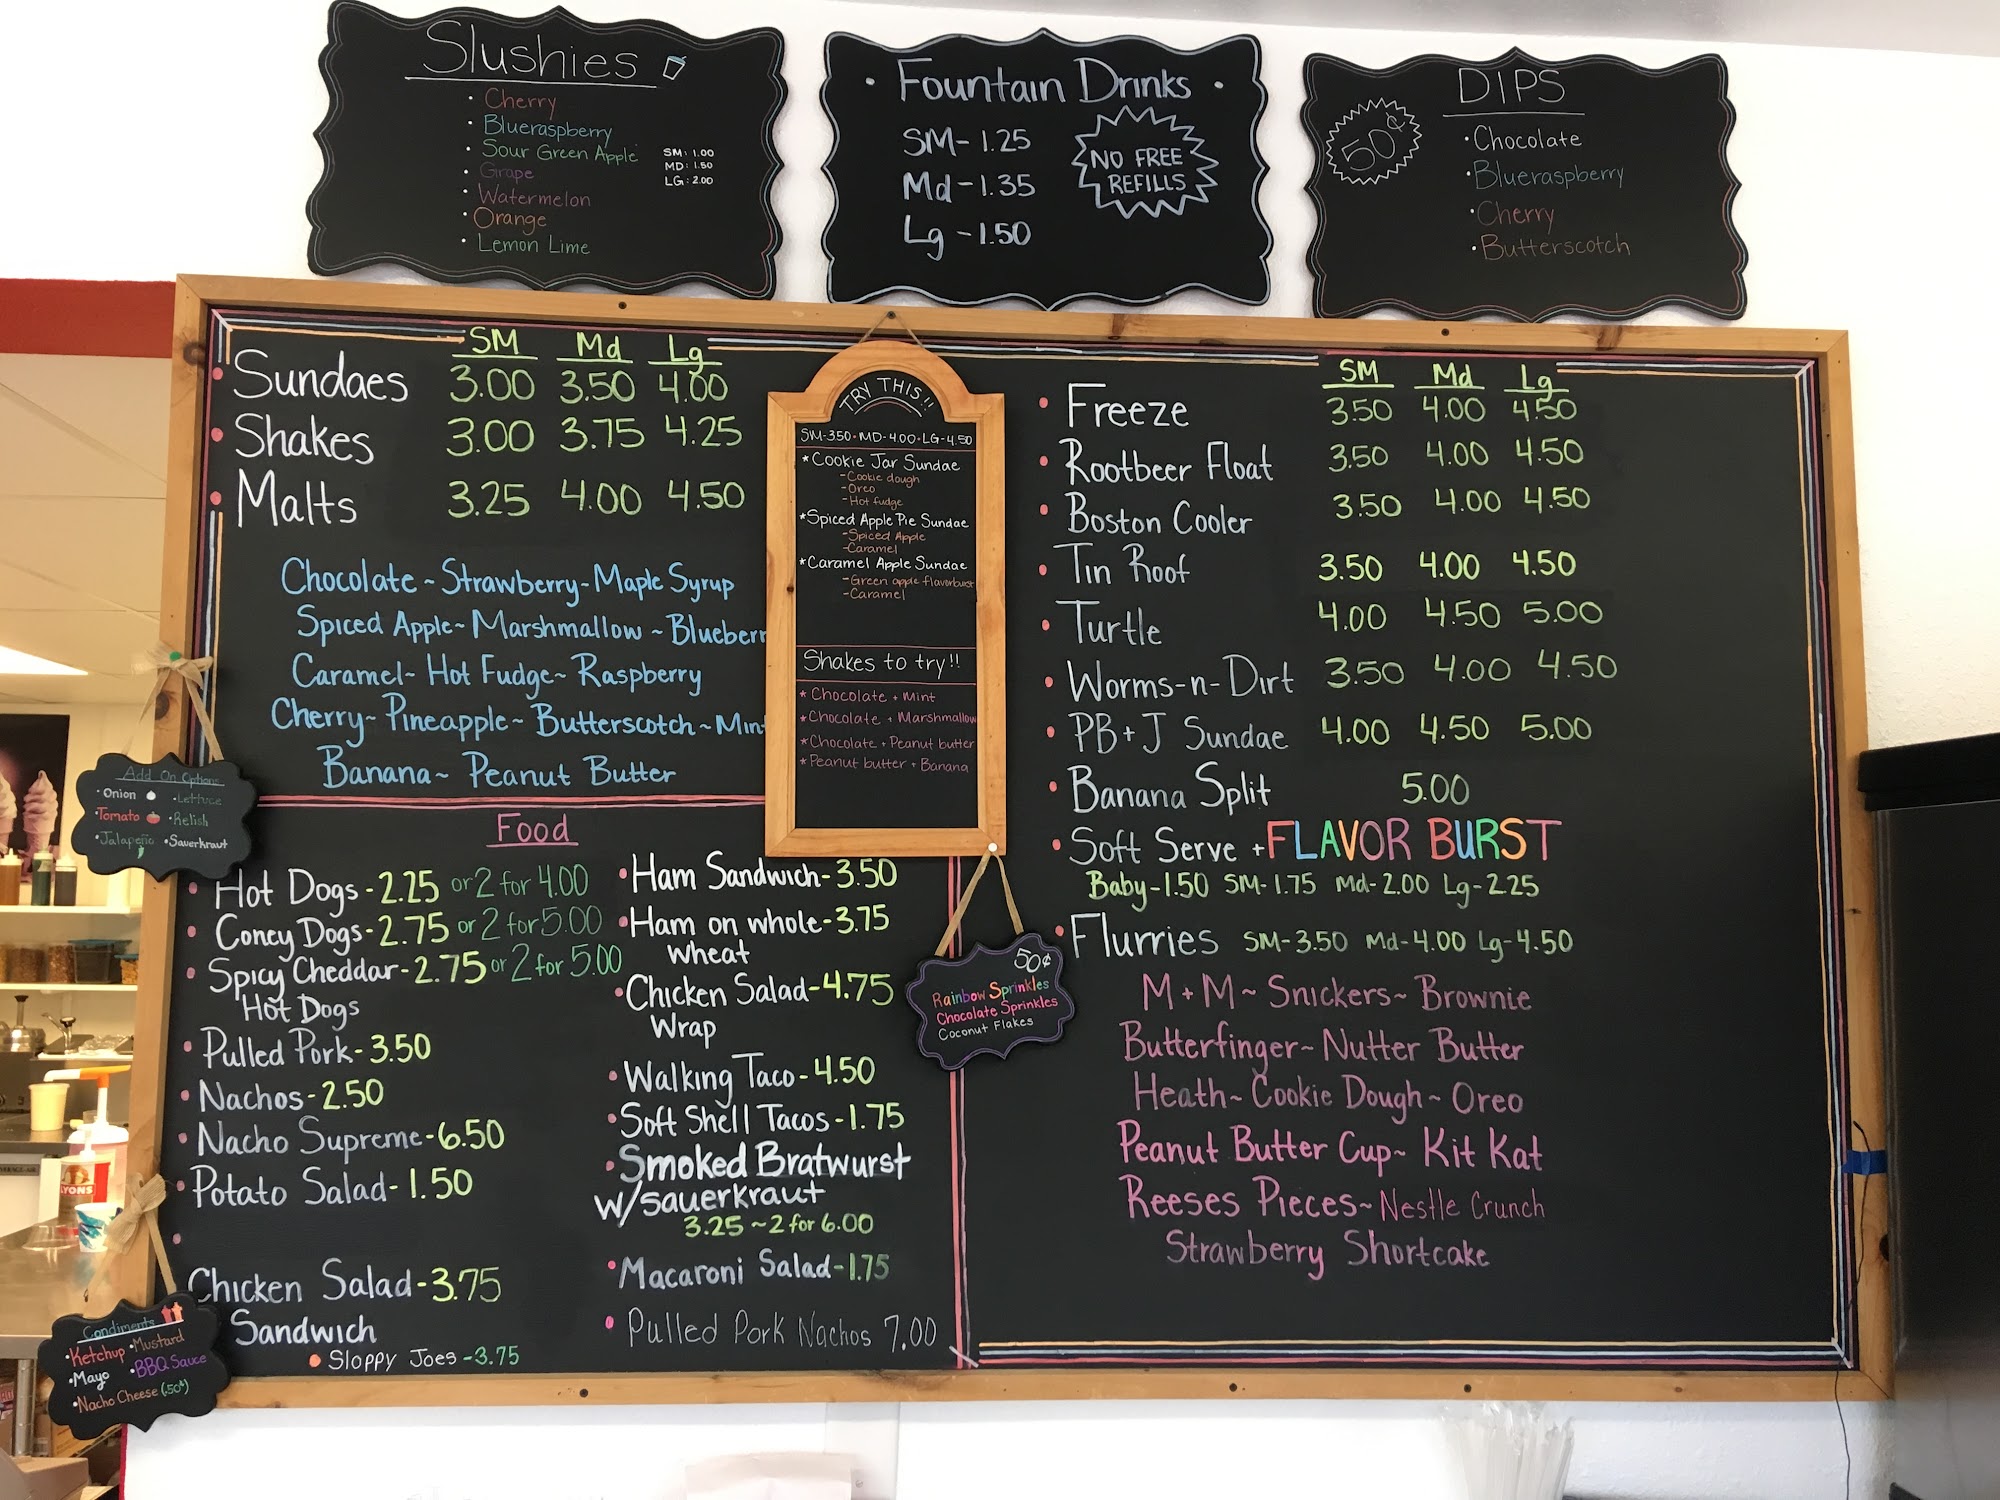 Slushies
• Cherry
• Blueraspberry
• Sour Green Apple
• Grape
• Watermelon
• Orange
• Lemon Lime
SM: 1.00
MD: 1.50
LG: 2.00
• Fountain Drinks •
SM- 1.25
Md-1.35
Lg -1.50
NO FREE
REFILLS
DIPS
50¢
• Chocolate
• Blueraspberry
• Cherry
• Butterscotch
SM Md Lg
• Sundaes 3.00 3.50 4.00
• Shakes 3.00 3.75 4.25
• Malts 3.25 4.00 4.50
Chocolate~Strawberry~Maple Syrup
Spiced Apple~Marshmallow~Blueberr
Caramel~ Hot Fudge~ Raspberry
Cherry~Pineapple~Butterscotch~Min
Banana~ Peanut Butter
TRY THIS!!
SM-3.50•MD-4.00•LG-4.50
*Cookie Jar Sundae
-Cookie dough
-Oreo
-Hot fudge
*Spiced Apple Pie Sundae
-Spiced Apple
-Caramel
*Caramel Apple Sundae
-Green apple flavorburst
-Caramel
Shakes to try!!
* Chocolate + Mint
*Chocolate + Marshmallow
*Chocolate + Peanut butter
*Peanut butter + Banana
SM Md Lg
• Freeze 3.50 4.00 4.50
• Rootbeer Float 3.50 4.00 4.50
• Boston Cooler 3.50 4.00 4.50
• Tin Roof 3.50 4.00 4.50
• Turtle 4.00 4.50 5.00
• Worms-n-Dirt 3.50 4.00 4.50
• PB+J Sundae 4.00 4.50 5.00
• Banana Split 5.00
• Soft Serve +FLAVOR BURST
Baby-1.50 SM-1.75 Md-2.00 Lg-2.25
• Flurries SM-3.50 Md-4.00 Lg-4.50
M+M~ Snickers~ Brownie
Butterfinger~Nutter Butter
Heath~Cookie Dough~Oreo
Peanut Butter Cup~ Kit Kat
Reeses Pieces~Nestle Crunch
Strawberry Shortcake
50¢
Rainbow Sprinkles
Chocolate Sprinkles
Coconut Flakes
Add On Options
•Onion •Lettuce
•Tomato •Relish
•Jalapeño •Sauerkraut
Food
• Hot Dogs-2.25 or 2 for 4.00
• Coney Dogs-2.75 or 2 for 5.00
• Spicy Cheddar-2.75 or 2 for 5.00
Hot Dogs
• Pulled Pork-3.50
• Nachos-2.50
• Nacho Supreme-6.50
• Potato Salad-1.50
•
Chicken Salad-3.75
Sandwich
• Sloppy Joes-3.75
•Ham Sandwich-3.50
•Ham on whole-3.75
wheat
•Chicken Salad-4.75
Wrap
•Walking Taco-4.50
•Soft Shell Tacos-1.75
•Smoked Bratwurst
w/sauerkraut
3.25 ~2 for 6.00
•Macaroni Salad-1.75
• Pulled Pork Nachos 7.00
Condiments
•Ketchup •Mustard
•Mayo •BBQ Sauce
•Nacho Cheese (.50¢)
LYONS